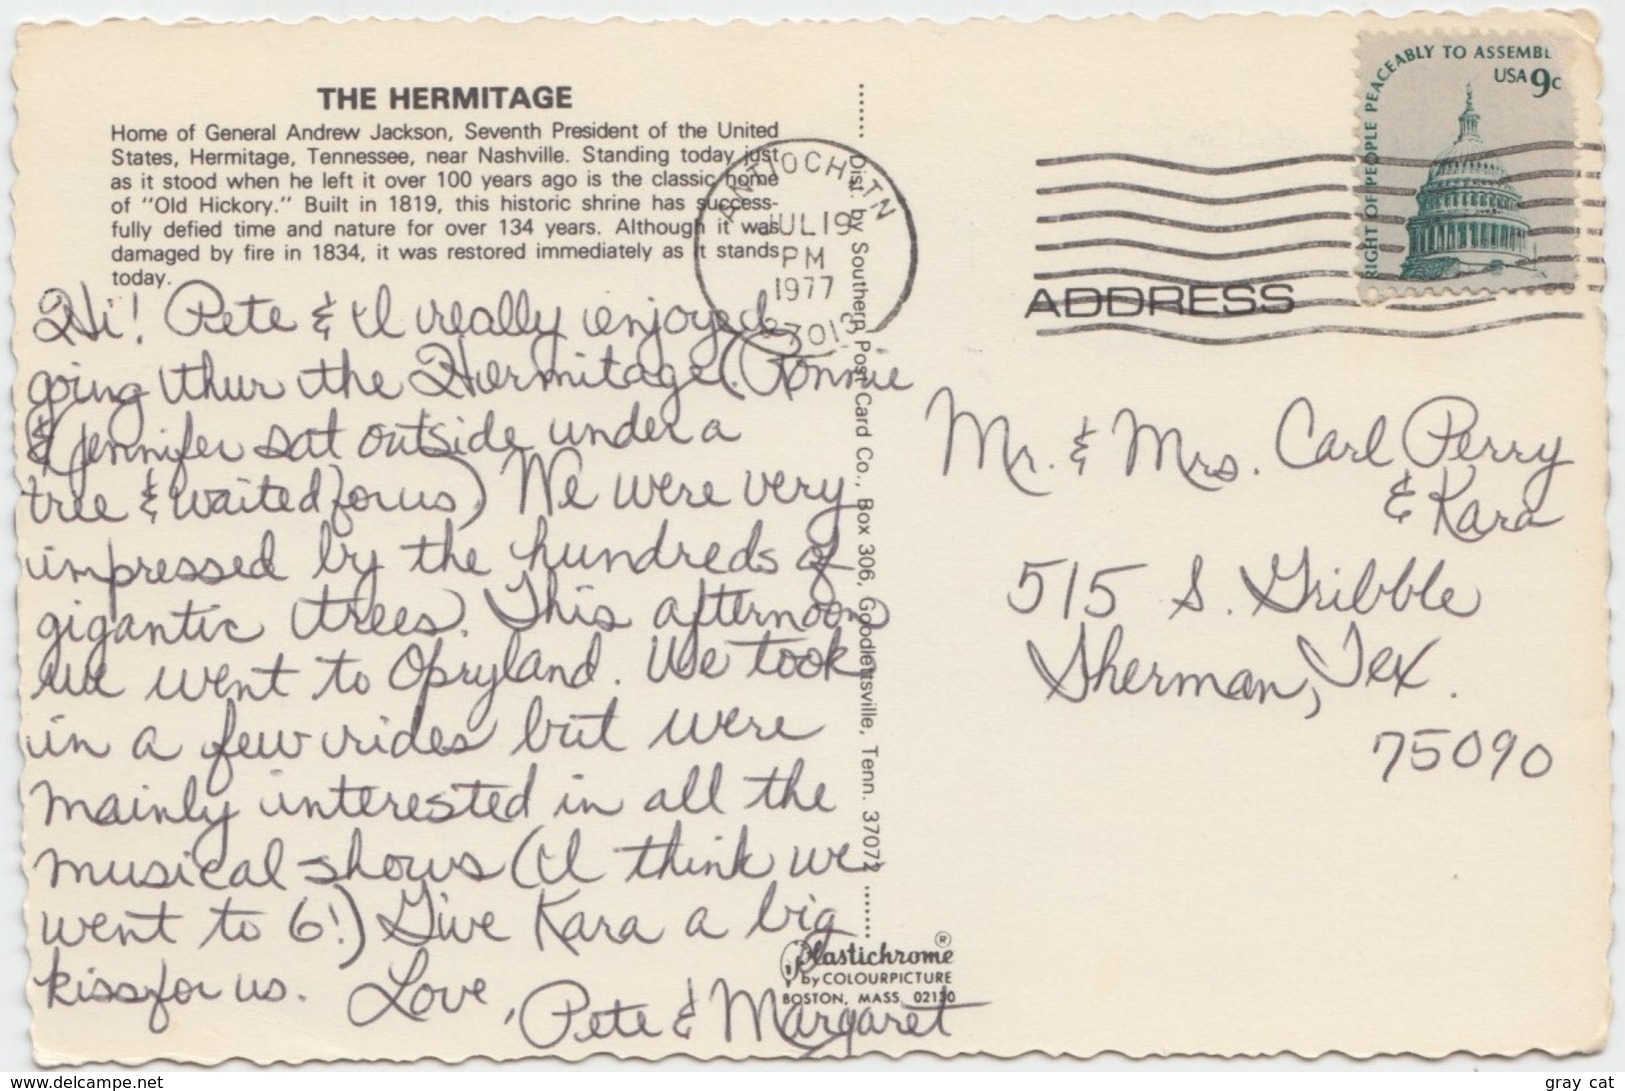 THE HERMITAGE
Home of General Andrew Jackson, Seventh President of the United
States, Hermitage, Tennessee, near Nashville. Standing today just
as it stood when he left it over 100 years ago is the classic home
of "Old Hickory." Built in 1819, this historic shrine has success-
fully defied time and nature for over 134 years. Although it was
damaged by fire in 1834, it was restored immediately as it stands
today.
Hi! Pete & I really enjoyed
going thur the Hermitage. (Ronnie
& Jennifer sat outside under a
tree & waited for us) We were very
impressed by the hundreds of
gigantic trees. This afternoon
we went to Opryland. We took
in a few rides but were
mainly interested in all the
musical shows (I think we
went to 6!) Give Kara a big
kiss for us. Love,
Pete & Margaret
Dist. by Southern Post Card Co., Box 306, Goodlettsville, Tenn. 37072
Plastichrome ®
by COLOURPICTURE
BOSTON, MASS. 02130
ANTIOCH, TN
JUL 19
PM
1977
37013
RIGHT OF PEOPLE PEACEABLY TO ASSEMBL
USA 9c
ADDRESS
Mr. & Mrs. Carl Perry
& Kara
515 S. Gribble
Sherman, Tex.
75090
www.delcampe.net
gray cat